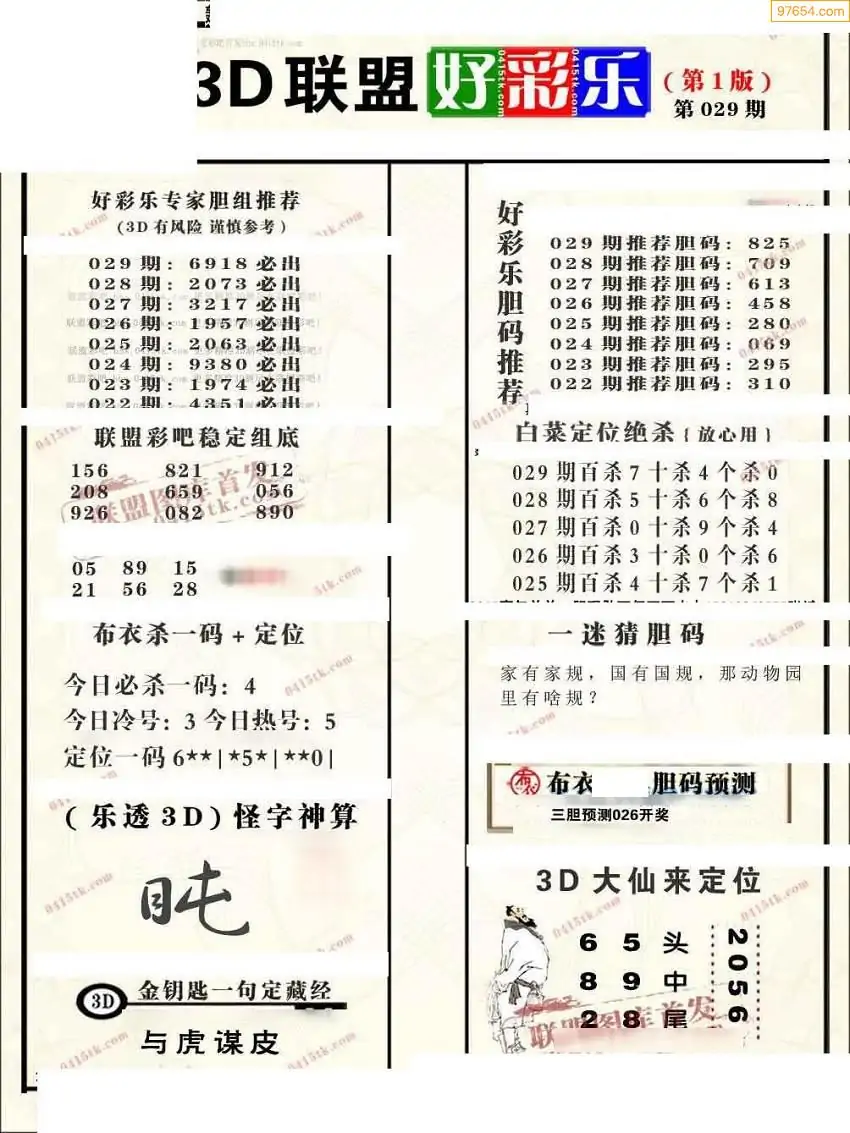 97654.com
3D联盟好彩乐
(第1版)
第029期
好彩乐专家胆组推荐
(3D有风险 谨慎参考)
029期: 6918必出
028期: 2073必出
027期: 3217必出
026期: 1957必出
025期: 2063必出
024期: 9380必出
023期: 1974必出
022期: 4351必出
联盟彩吧稳定组底
156 821 912
208 659 056
926 082 890
联盟图库首发
05 89 15
21 56 28
布衣杀一码+定位
今日必杀一码: 4
今日冷号: 3 今日热号: 5
定位一码6**|*5*|**0|
(乐透3D)怪字神算
3D 金钥匙一句定藏经
与虎谋皮
好彩乐胆码推荐
029期推荐胆码: 825
028期推荐胆码: 709
027期推荐胆码: 613
026期推荐胆码: 458
025期推荐胆码: 280
024期推荐胆码: 069
023期推荐胆码: 295
022期推荐胆码: 310
白菜定位绝杀{放心用}
029期百杀7十杀4个杀0
028期百杀5十杀6个杀8
027期百杀0十杀9个杀4
026期百杀3十杀0个杀6
025期百杀4十杀7个杀1
一迷猜胆码
家有家规，国有国规，那动物园
里有啥规？
布衣 胆码预测
三胆预测026开奖
3D大仙来定位
6 5 头
8 9 中
2 8 尾
2056
联盟图库首发
0415tk.com